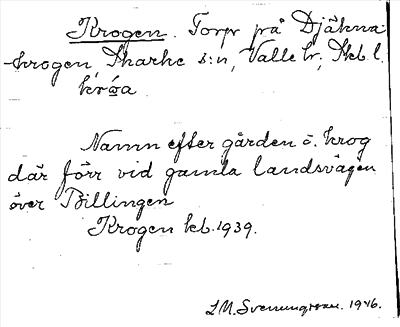 Krogen. Torp på Djäkna-
krogen Skarke s:n, Valle hr; Skb. l.
Namn efter gården o. krog
där förr vid gamla landsvägen
över Billingen
Krogen kb. 1939.
L M. Svenungsson. 1946.